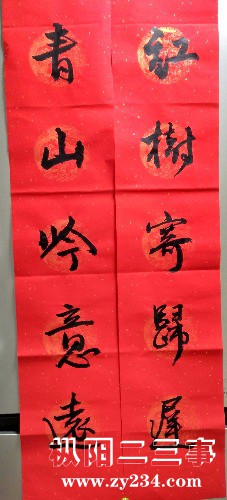 紅樹寄歸遲
青山吟意遠
枞阳二三事
www.zy234.com